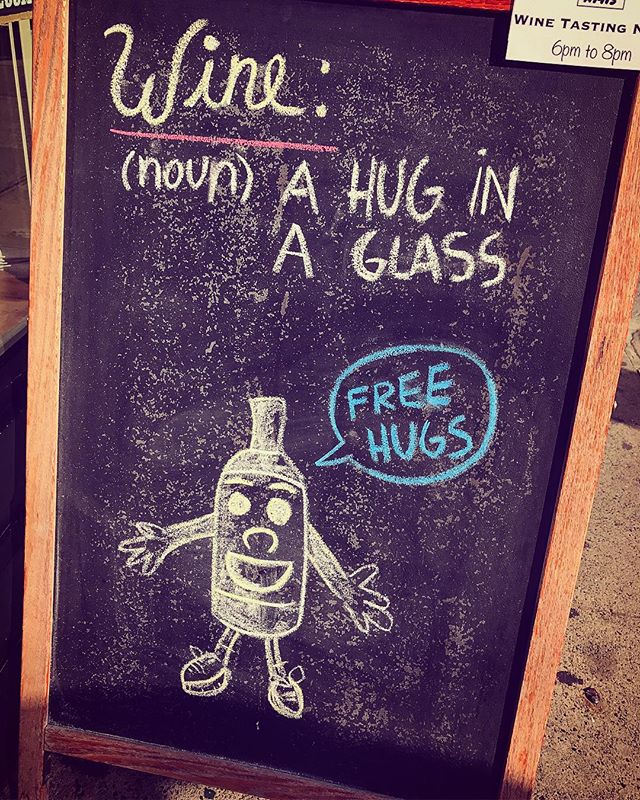 WINE TASTING
6pm to 8pm
Wine:
(noun) A HUG IN
A GLASS
FREE
HUGS